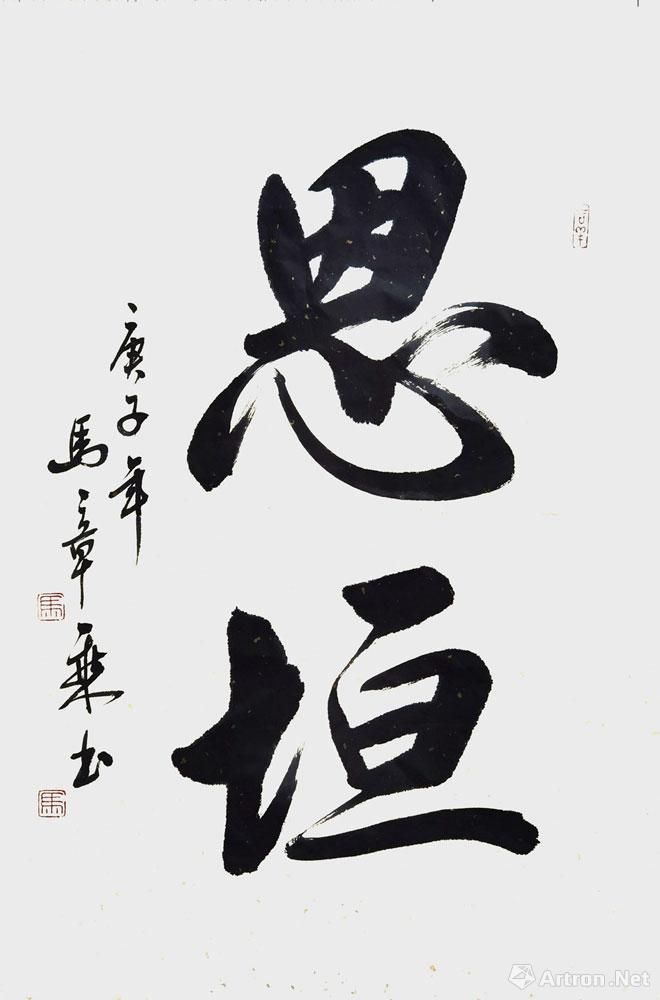 思垣
庚子年
馬章乘书
馬
馬
Artron.Net